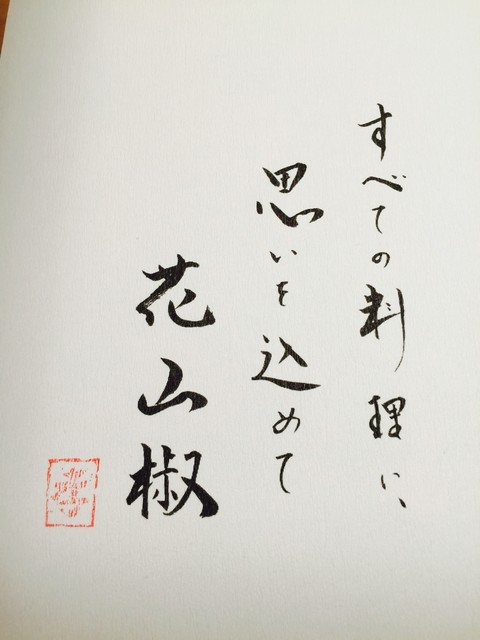 すべての料理に、
思いを込めて
花山椒